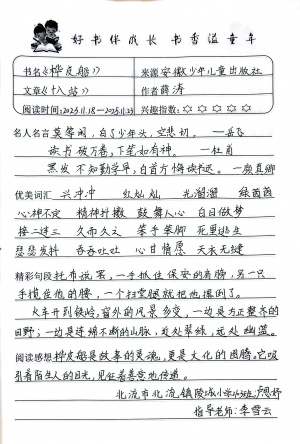 好书伴成长 书香溢童年
书名《桦皮船》 来源 安徽少年儿童出版社
文章《十八站》 作者 薛涛
阅读时间:2025.11.18—2025.11.23 兴趣指数:☆ ☆ ☆ ☆ ☆
名人名言 莫等闲,白了少年头,空悲切。 —岳飞
读书破万卷,下笔如有神。 —杜甫
黑发不知勤学早,白首方悔读书迟。 —颜真卿
优美词汇 兴冲冲 红灿灿 光溜溜 绿茵茵
心神不定 精神抖擞 鼓舞人心 白日做梦
接二连三 久而久之 蹑手蹑脚 死里逃生
瑟瑟发抖 吞吞吐吐 心甘情愿 天衣无缝
精彩句段 托布说罢,一手抓住保安的肩膀,另一只
手揽住他的腰,一个扫堂腿就把他撂倒了。
火车开到铁岭,窗外的风景多变,一边是方正整齐的
田野;一边是连绵不断的山脉,近处翠绿,远处幽蓝。
阅读感想 桦皮船是故事的灵魂,更是文化的图腾,它吸
引着陌生人的目光,见证着善意地传递。
北流市北流镇陵城小学 班 卢思妤
指导老师:李雪云